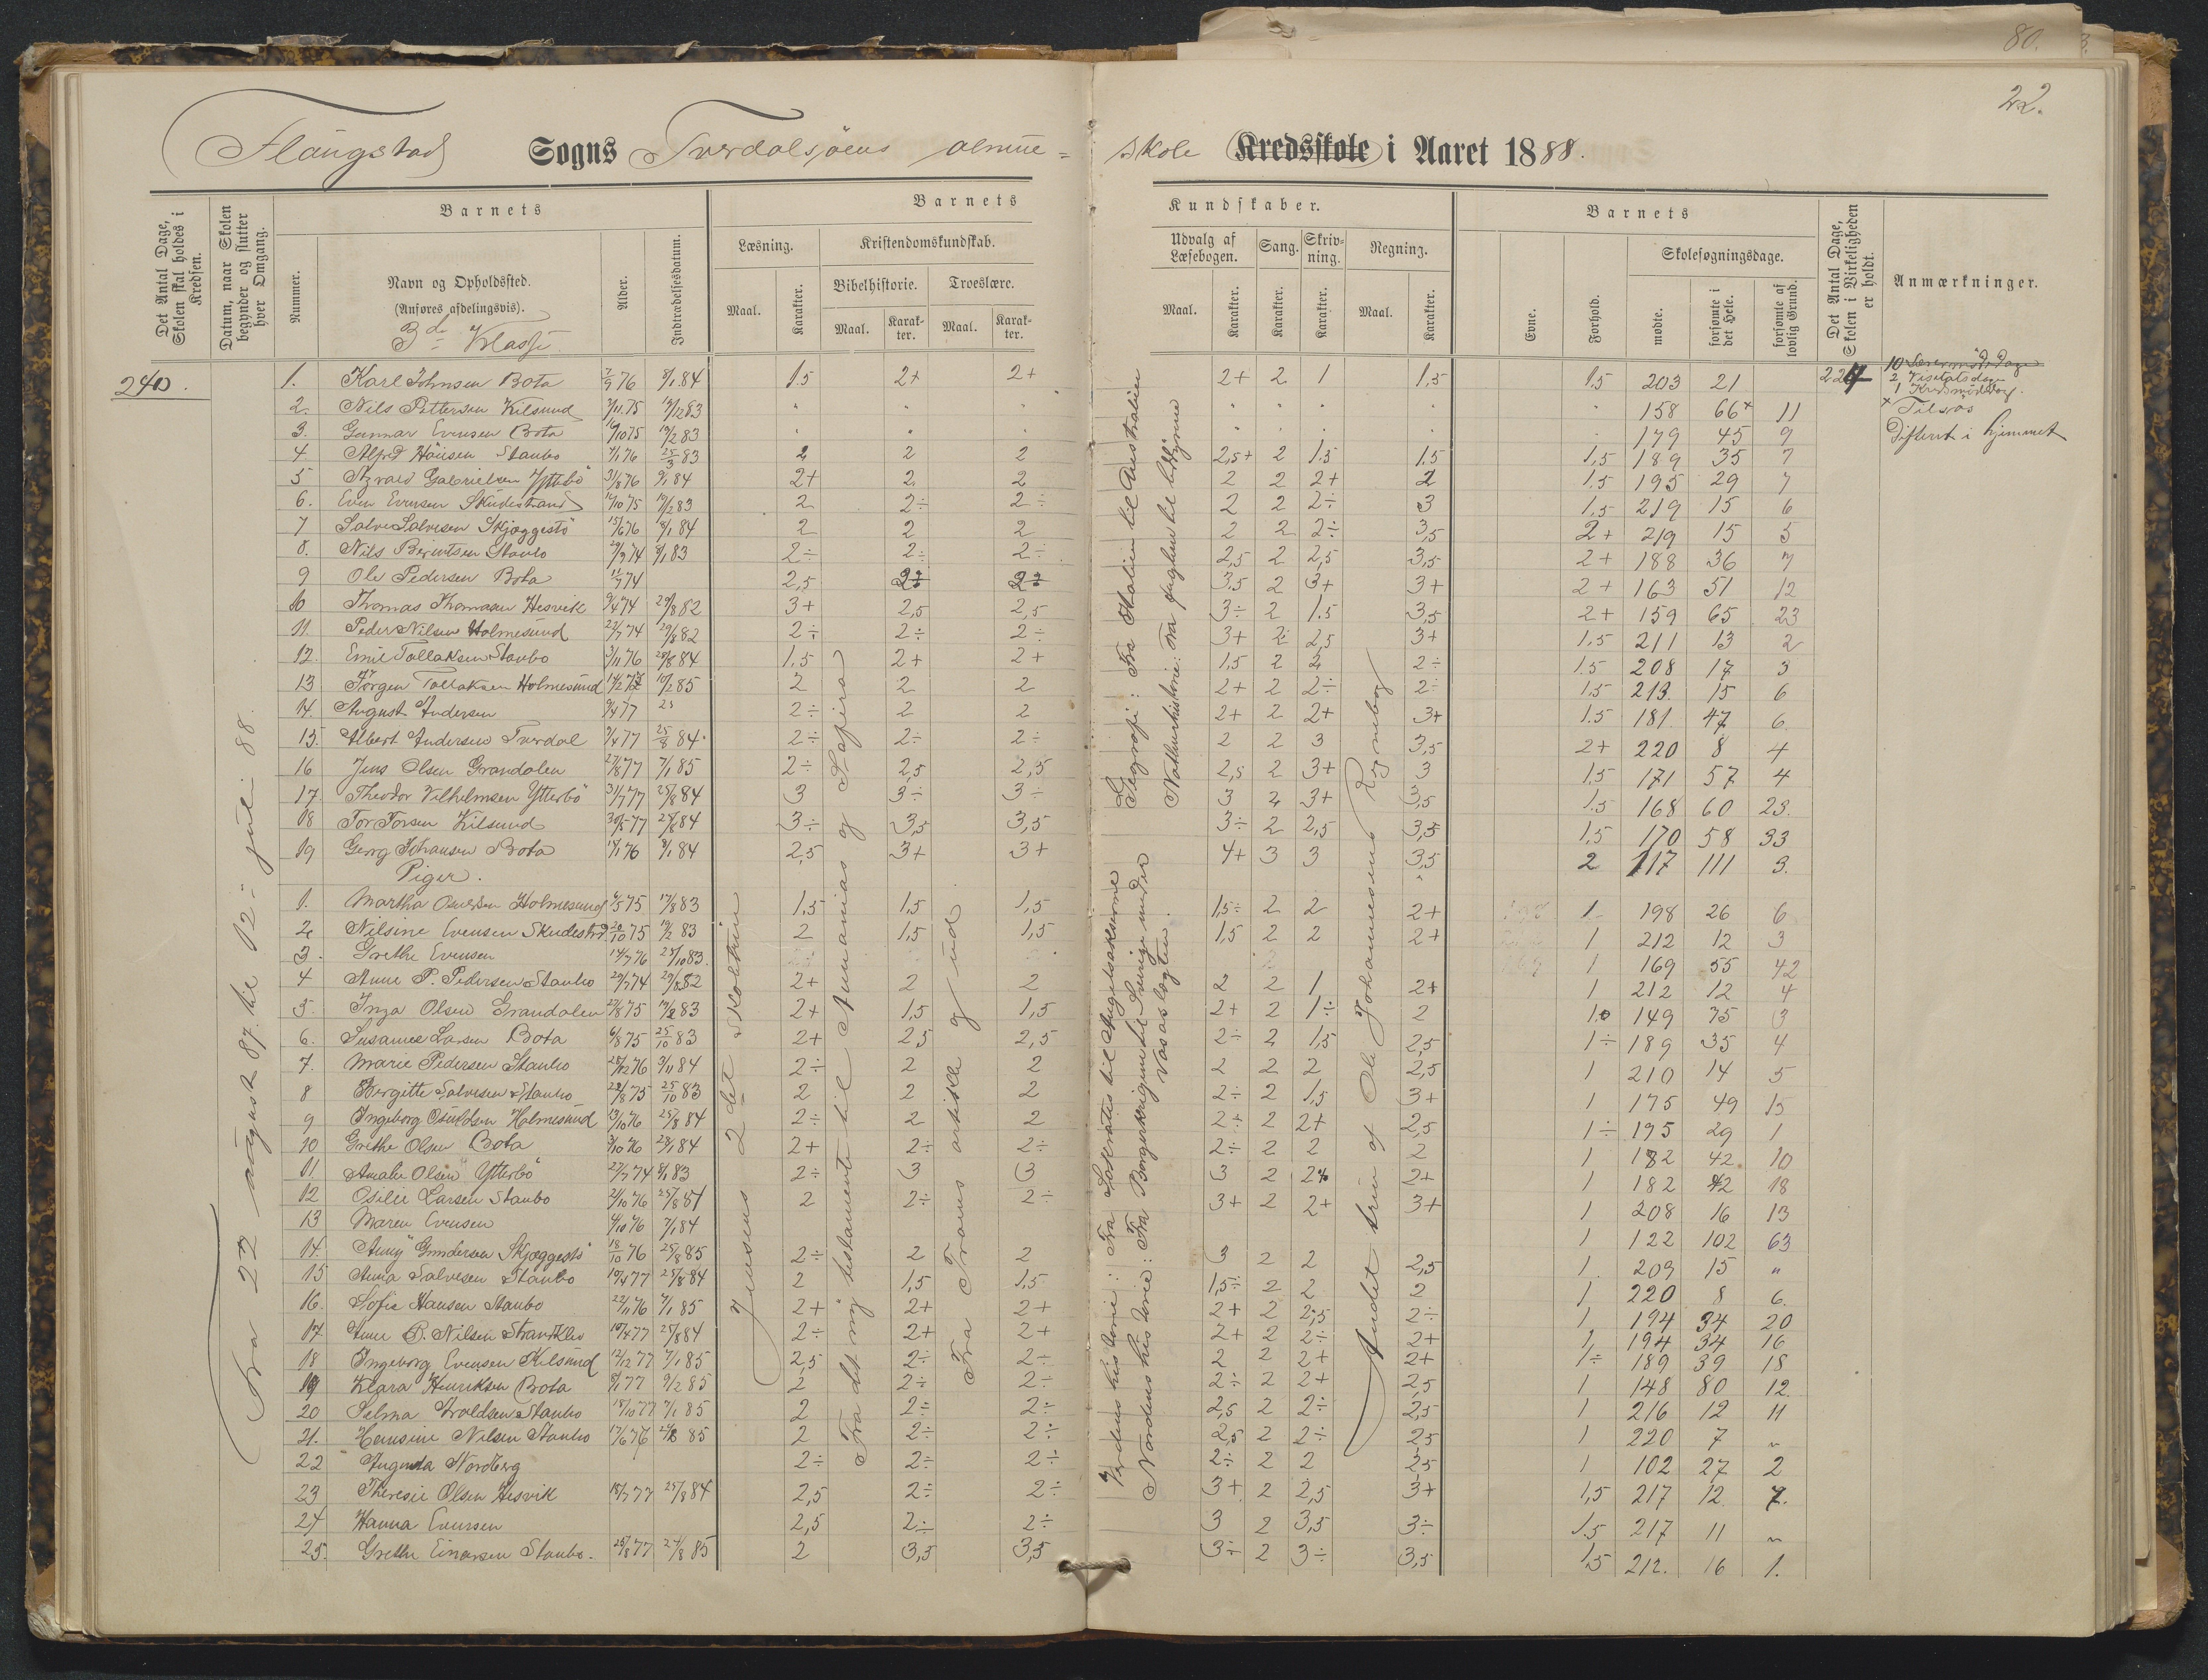 80.
22.
Flangstad Sogns Tverdalsjøens almue=
skole Kredsskole i Aaret 1888.
Det Antal Dage, Skolen skal holdes i Kredsen.
Datum, naar Skolen begynder og slutter hver Omgang.
Barnets
Nummer.
Navn og Opholdssted.
(Anføres afdelingsvis).
3de Klasse.
Alder.
Indtrædelsesdatum.
Barnets
Kundskaber.
Læsning.
Maal.
Karakter.
Kristendomskundskab.
Bibelhistorie.
Maal.
Karakter.
Troeslære.
Maal.
Karakter.
Udvalg af Læsebogen.
Maal.
Karakter.
Sang.
Karakter.
Skrivning.
Karakter.
Regning.
Maal.
Karakter.
Barnets
Evne.
Forhold.
Skolesøgningsdage.
mødte.
forsømte i det Hele.
forsømte af lovlig Grund.
Det Antal Dage, Skolen i Virkeligheden er holdt.
Anmærkninger.
240.
Fra 22 august 87. til 12 juli 88.
Jensens 2det Skoltrin
Fra det ny testamente til Annanias og Safira
Fra Troens artikle g ud.
Geografi: Fra Italien til Australien
Naturhistorie: Fra fuglene til
Verdens historie: Fra Sokrates til Angelsakserne
Nordens historie: Fra Borgerkrigene til Sverige under Vasaslægten.
Andet trin af Ole Johannesens Regnebog
224
10
2 Visitatsdag
1
× Tilsøs
Difterit i hjemmet
1. Karl Johnsen Bota 7/9 76 8/1.84 1.5 2+ 2+ 2+ 2 1 1,5 1.5 203 21
2. Nils Pettersen Kilsund 7/11.75 19/12 83 " " " " " " " " 158 66× 11
3. Gunnar Evensen Bota 16/10 75 19/2 83 " " " " " " " " 179 45 9
4 Alfred Hansen Staubo 7/1 76 25/3 83 2 2 2 2,5+ 2 1.5 1.5 1,5 189 35 7
5 Gabrielsen Ytterbö 31/8 76 9/1 84 2+ 2 2 2 2 2+ 2 1.5 195 29 7
6. Even Evensen Skudestrand 14/10 75 19/2 83 2 2÷ 2÷ 2 2 2÷ 3 1,5 219 15 6
7 Salve Salvesen Skjæggestö 15/6 76 18/1 84 2 2 2 2 2 2÷ 3,5 2+ 219 15 5
8. Nils Berintsen Staubo 29/9 74 8/1 83 2÷ 2÷ 2÷ 2,5 2 2,5 3,5 2+ 188 36 7
9 Ole Pedersen Bota 11/7 74 2,5 3.5 2 3+ 3+ 2+ 163 51 12
10 Thomas Thomasen Hesvik 9/4 74 29/8 82 3+ 2,5 2,5 3÷ 2 1.5 3,5 2+ 159 65 23
11. Peder Nilsen Holmesund 22/7 74 29/8 82 2÷ 2÷ 2÷ 3+ 2÷ 2,5 3+ 1.5 211 13 2
12. Emil Tallaksen Staubo 3/11 76 28/8 84 1.5 2+ 2+ 1,5 2 2 2÷ 1.5 208 17 3
13 Jörgen Tallaksen Holmesund 10/2 85 2 2 2 2+ 2 2÷ 2÷ 1,5 213. 15 6
14. August Andersen 9/4 77 2÷ 2 2 2+ 2 2+ 3+ 1.5 181 47 6
15. Albert Andersen Tverdal 9/4 77 25/8 84 2÷ 2÷ 2÷ 2 2 3 3,5 2+ 220 8 4
16 Jens Olsen Grandalen 27/8 77 7/1 85 2÷ 2,5 2,5 2,5 2 3+ 3 1.5 171 57 4
17 Theodor Vilhelmsen Ytterbö 31/7 77 25/8 84 3 3÷ 3÷ 3 2 3+ 3,5 1.5 168 60 23.
18 Tor Torsen Kilsund 30/5 77 25/8 84 3÷ 3,5 3,5 3÷ 2 2,5 3,5 1,5 170 58 33
19 Georg Johansen Bota 14/1 76 8/1 84 2,5 3+ 3+ 4+ 3 3 3,5 2 117 111 3.
Piger.
1. Martha Holmesund 4/5 75 17/8 83 1,5 1,5 1,5 1,5÷ 2 2 2+ 1 198 26 6
2. Nilsine Evensen Skudestrd 20/10 75 19/2 83 2 1,5 1,5 1,5 2 2 2+ 1 212 12 3
3. Grethe Evensen 14/7 76 25/10 83. 1 169 55 42
4 Anne P. Pedersen Staubo 29/7 74 29/8 82 2+ 2 2 2 2 1 2+ 1 212 12 4
5. Inga Olsen Grandalen 27/8 75 19/2 83 2+ 1,5 1,5 2+ 2 1÷ 2 1. 149 75 3
6. Susanne Larsen Bota 6/8 75 25/10 83 2+ 2,5 2,5 2÷ 2 1,5 2,5 1÷ 189 35 4
7. Marie Pedersen Staubo 28/12 76 3/11 84 2÷ 2 2 2 2 2 2,5 1 210 14 5
8 Bergitte Salvesen Staubo 29/8 75 25/10 83 2 2 2 2÷ 2 1,5 3+ 1 175 49 15
9 Ingeborg Osuldsen Holmesund 13/10 76 25/8 84 2÷ 2 2 2÷ 2 2+ 2,5 1÷ 195 29 1
10 Grethe Olsen Bota 3/10 76 28/1 84 2+ 2÷ 2÷ 2÷ 2 2 2 1 182 42 10
11. Amalie Olsen Ytterbö 27/7 74 8/1 83 2÷ 3 3 3 2 2+ 2+ 1 182 42 18
12 Osilie Larsen Staubo 2/10 76 25/8 84 2 2÷ 2÷ 3+ 2 2+ 3+ 1 208 16 13
13 Maren Evensen 4/10 76 7/1 84 1 122 102 63
14. Anny Gundersen Skjæggestö 18/10 76 25/8 85 2÷ 2 2 3 2 2 2,5 1. 209 15 "
15 Anna Salvesen Staubo 10/4 77 25/8 84 2 1,5 1,5 1,5÷ 2 2 2 1 220 8 6.
16. Sofie Hansen Staubo 22/11 76 7/1 85 2+ 2+ 2+ 2+ 2 2,5 2÷ 1 194 34 20
17. Anne P. Nilsen 10/4 77 25/8 84 2÷ 2+ 2+ 2+ 2 2÷ 2+ 1 194 34 16
18 Ingeborg Evensen Kilsund 12/12 77 7/1 85 2,5 2÷ 2÷ 2 2 2+ 2+ 1÷ 189 39 18
19 Klara Henriksen Bota 9/1 77 9/2 85 2 2÷ 2÷ 2÷ 2 2+ 2,5 1 148 80 12.
20 Selma Arvoldsen Staubo 18/10 77 7/1 85 2 2÷ 2÷ 2,5 2 2÷ 2,5 1 216 12 11
21. Hansine Nilsen Staubo 17/6 76 24/8 85 2 2÷ 2÷ 2,5 2 2÷ 2,5 1 220 7 "
22 Augusta Nordberg 2÷ 2÷ 2÷ 2÷ 2 2 2,5 1 102 27 2
23 Theresie Olsen Hesvik 18/7 77 25/8 84 2,5 2÷ 2÷ 3+ 2 2,5 3+ 1,5 217 12. 7.
24 Hanna Evensen 2,5 2÷ 2÷ 3 2 3,5 3÷ 1.5 217 11 "
25. Grethe Einarsen Staubo. 25/8 77 24/8 85 2 3,5 3,5 3÷ 2 3÷ 3,5 1,5 212. 16 1.